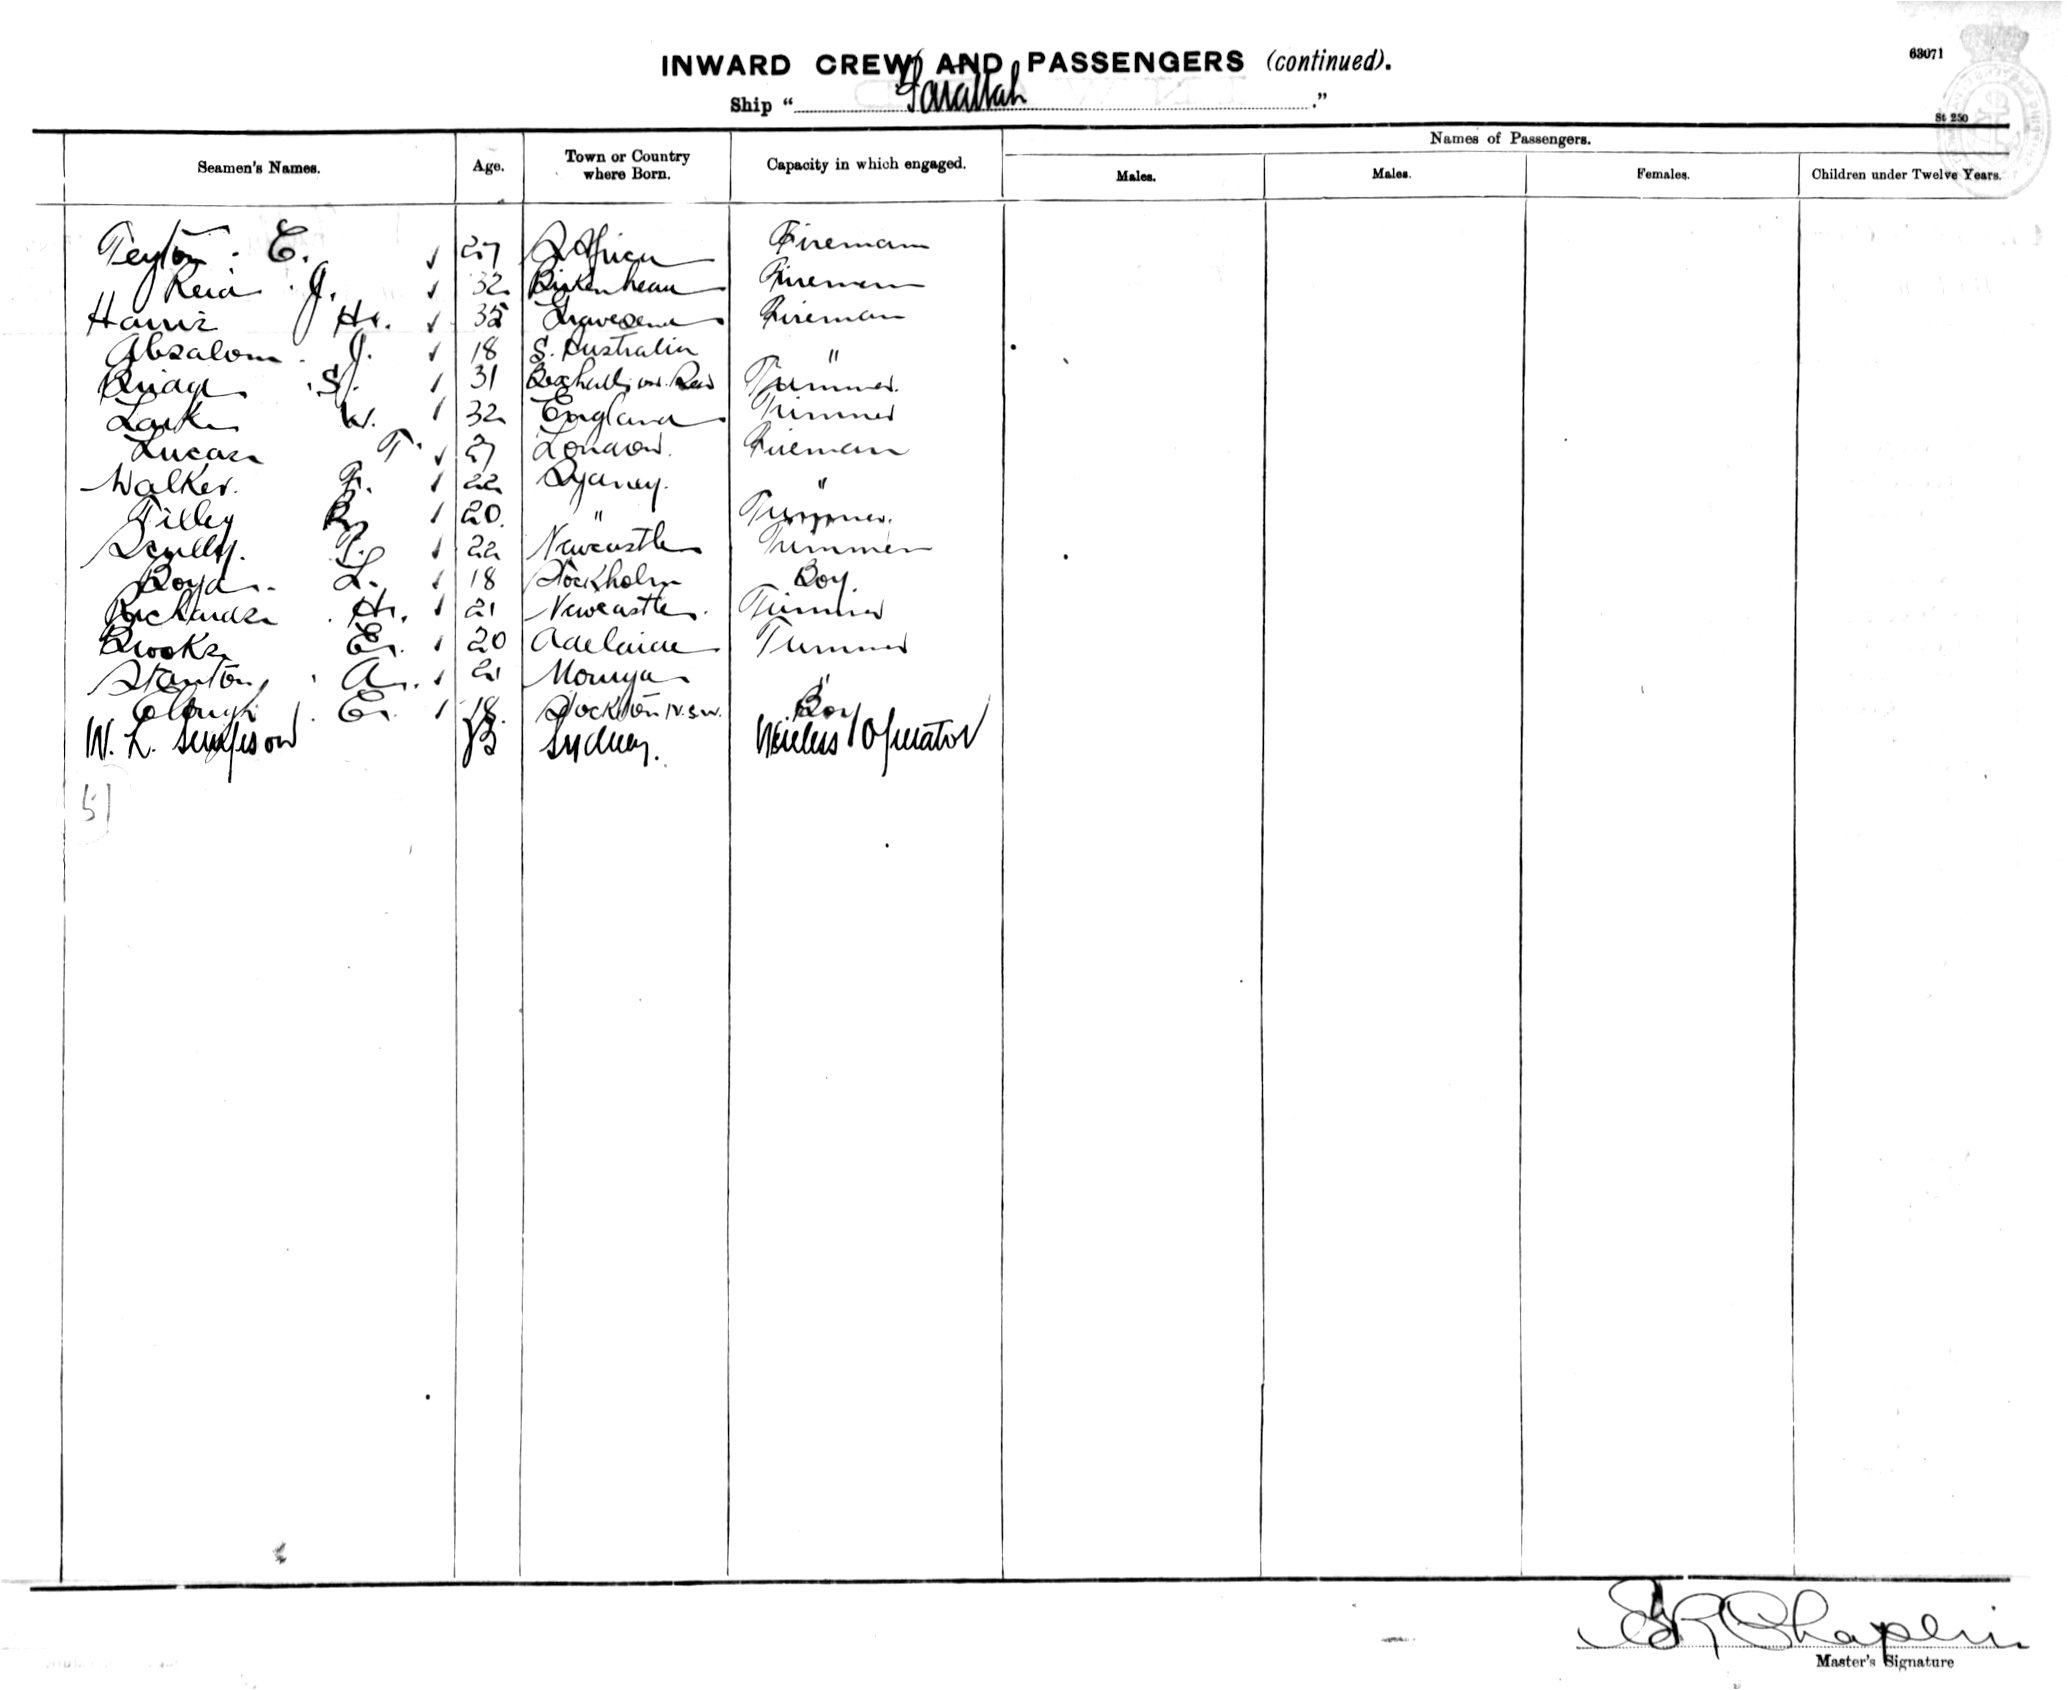 INWARD CREW AND PASSENGERS (continued).
63071
Ship " Parattah ."
St 250
Seamen's Names. Age. Town or Country where Born. Capacity in which engaged. Names of Passengers.
Males. Males. Females. Children under Twelve Years.
Peyton. E. 27 S Africa Fireman
Reid. J. 32 Birkenhead Fireman
Harris H. 35 Gravesend Fireman
Absalom. J. 18 S. Australia "
S. 31 Trimmer.
W. 32 England Trimmer
Lucas T. 27 London. Fireman
Walker. F. 22 Sydney. "
Tilley R 20. " Trimmer.
Scully. 22 Newcastle Trimmer
Boyd. L. 18 Stockholm Boy.
Richards . H. 21 Newcastle. Trimmer
Brooks E. 20 Adelaide Trimmer
Stanton . A. 21 Moruya "
Clough . E. 18. Stockton N.S.W. Boy
W. L. Simpson Sydney. Wireless Operator
51
Chaplin
Master's Signature